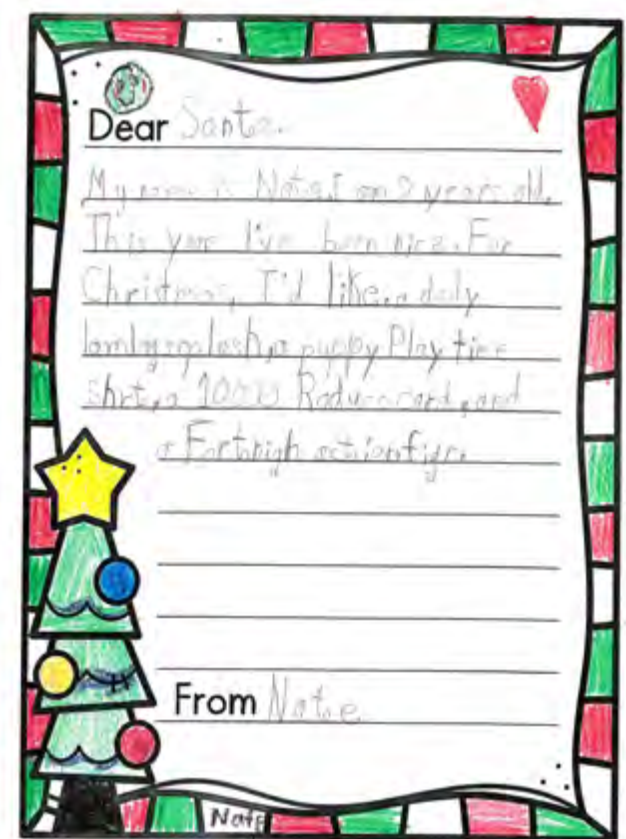 Dear Santa.
My name is Nate, I am 9 years old.
This year I've been nice. For
Christmas, I'd like, a
a puppy Play time
shrt, a card, and
a Fortnigh action figr.
From Nate
Nate